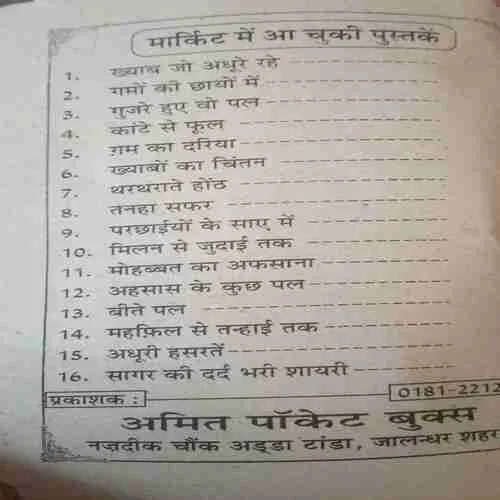 मार्किट में आ चुकी पुस्तकें
1. ख्याब जो अधुरे रहे
2. गमों की छायों में
3. गुजरे हुए वो पल
4. कांटे से फूल
5. ग़म का दरिया
6. ख्याबों का चिंतन
7. थरथराते होंठ
8. तनहा सफर
9. परछाईयों के साए में
10. मिलन से जुदाई तक
11. मोहब्बत का अफसाना
12. अहसास के कुछ पल
13. बीते पल
14. महफ़िल से तन्हाई तक
15. अधूरी हसरतें
16. सागर की दर्द भरी शायरी
प्रकाशक : 0181-2212
अमित पॉकेट बुक्स
नज़दीक चौंक अड्डा टांडा, जालन्धर शहर